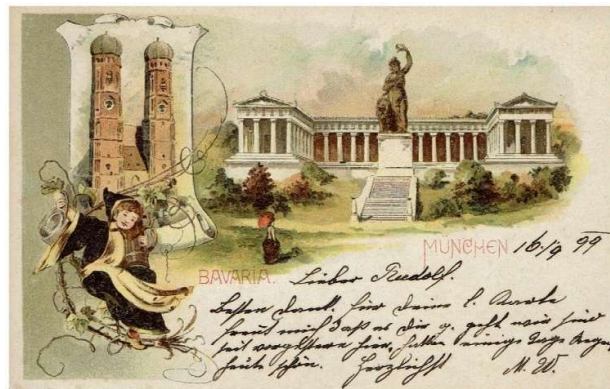 MÜNCHEN 16/9 99
BAVARIA.
Lieber Rudolf.
Besten Dank für Deine l. Karte
freut mich daß es Dir g. geht wir sind
seit vorgestern hier, hatten einige Tage Regen
heute schön. Herzlichst M. W.